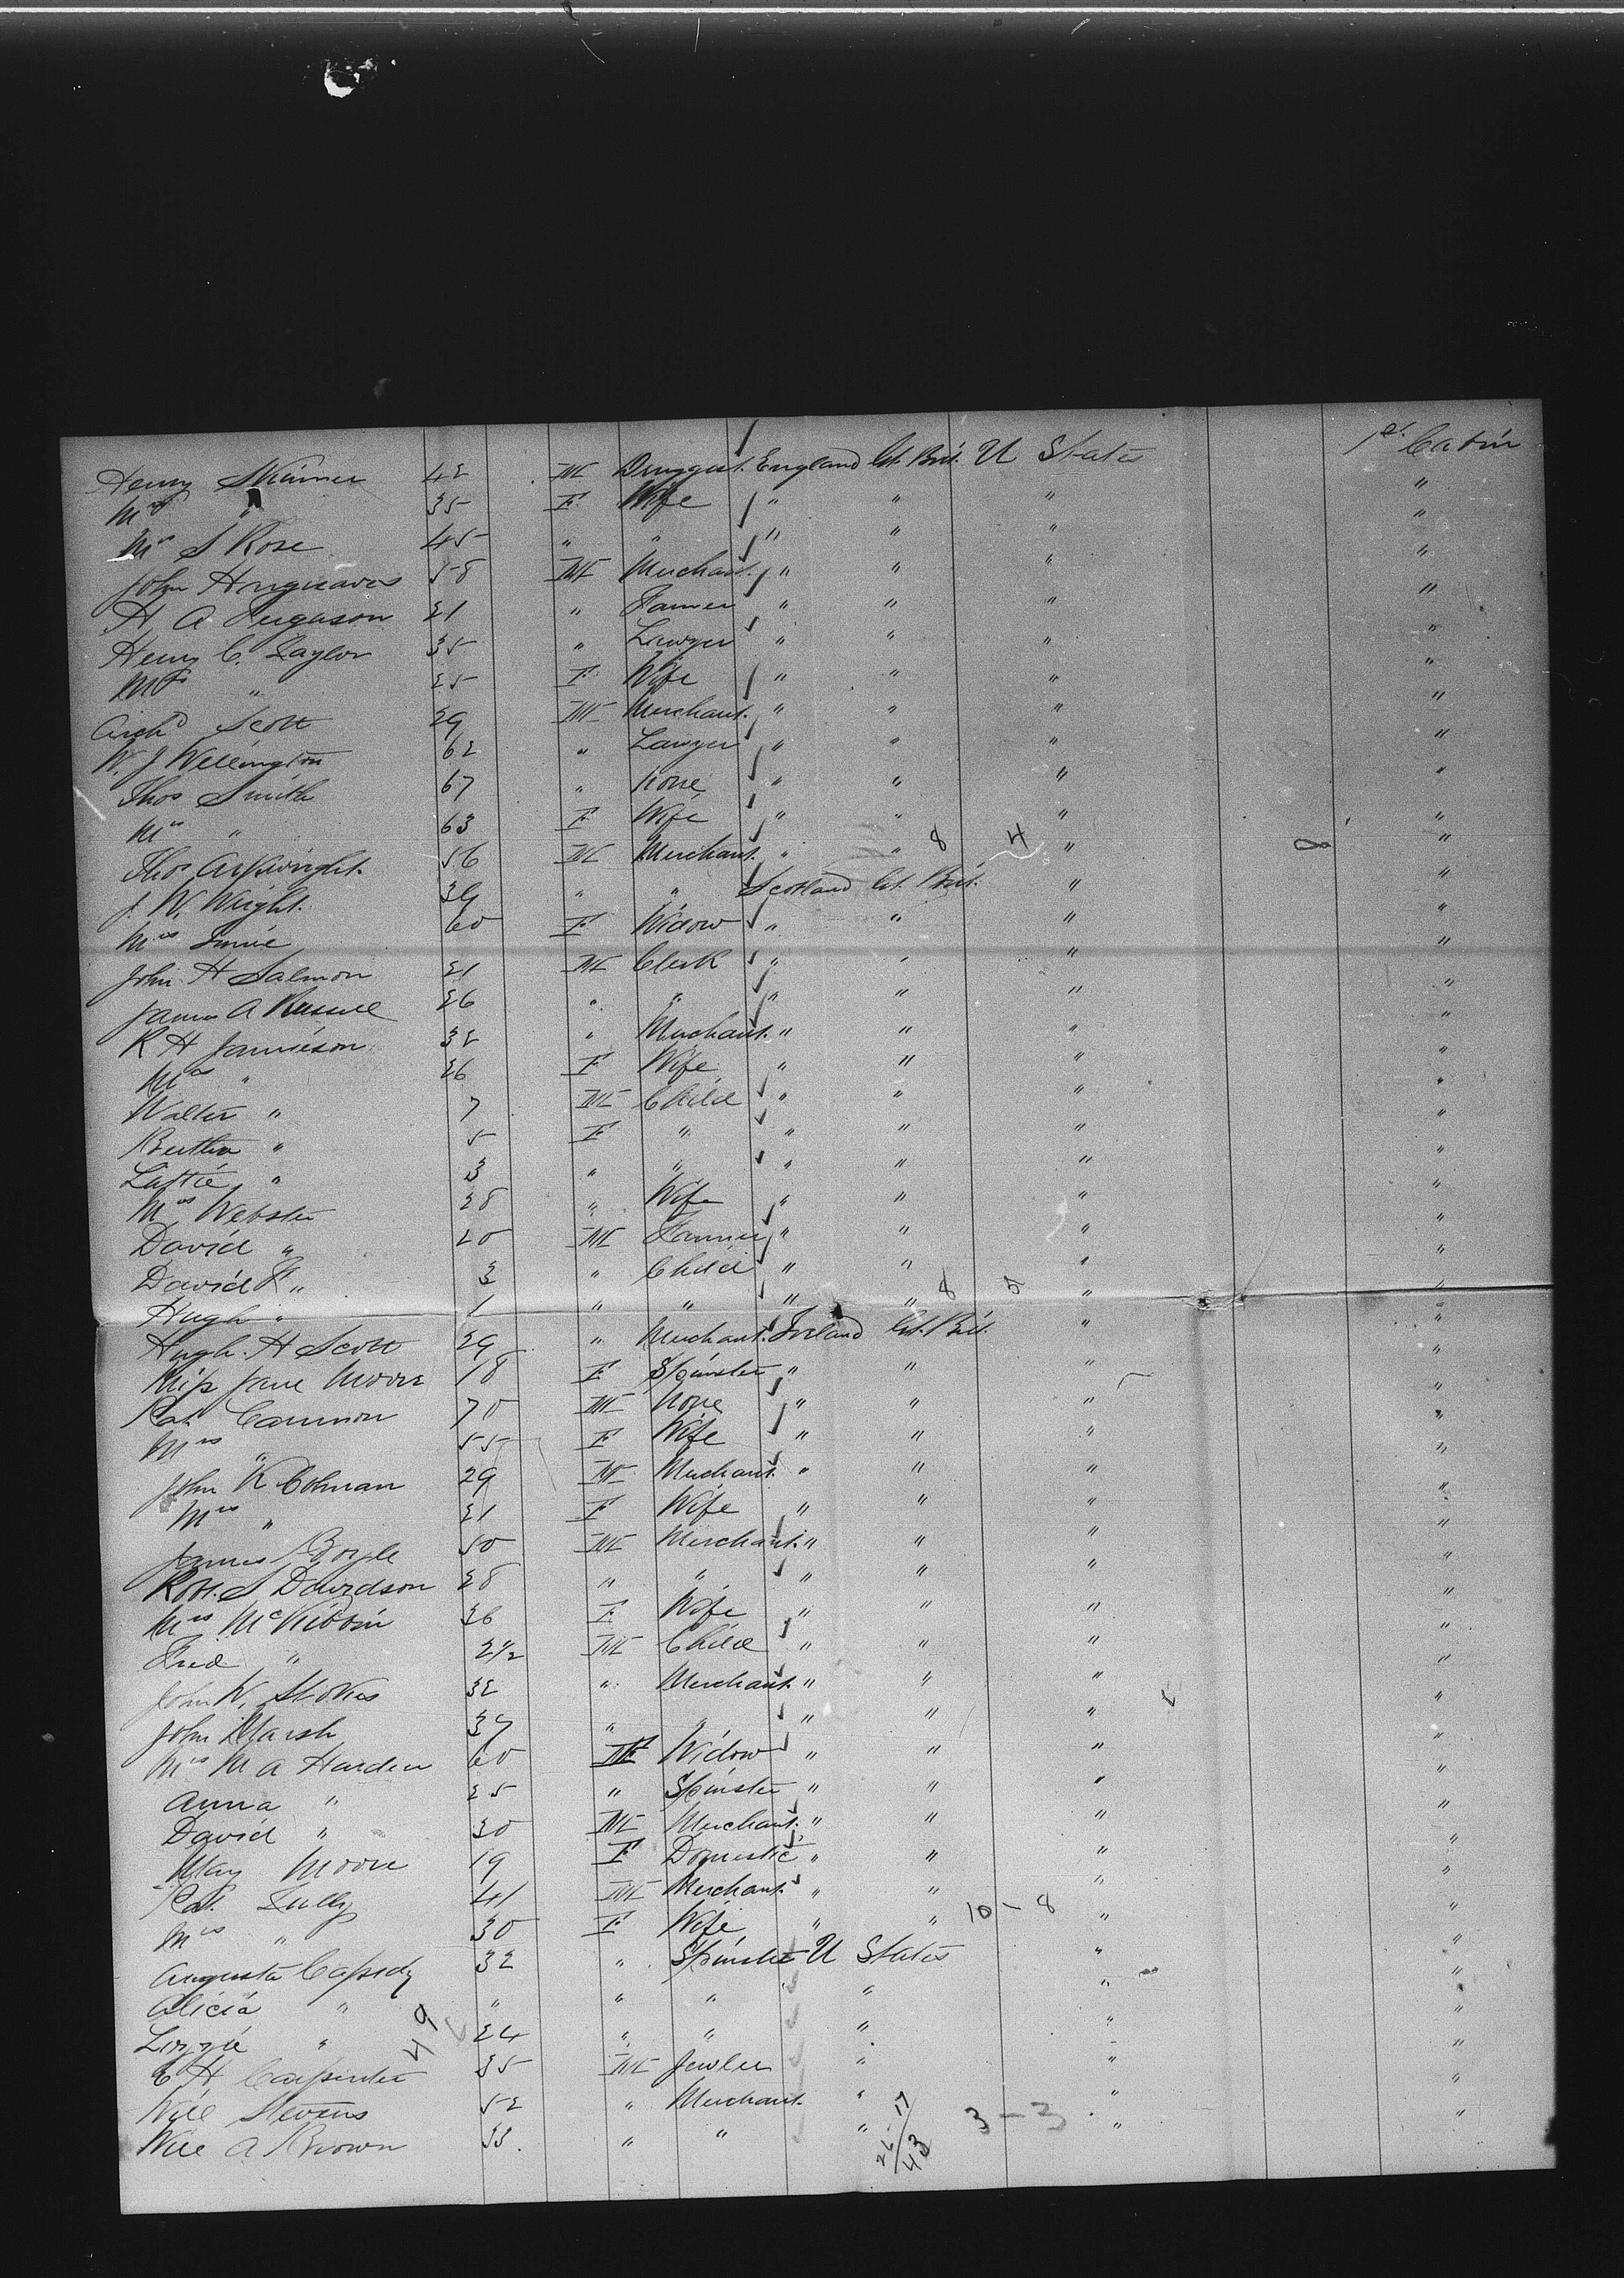 Henry Skinner 42 M Druggist. England Gt. Brit. U States 1st Cabin
Mrs " 35 F Wife " " " "
Mrs S Rose 45 " " " " " "
John Hargreaves 58 M Merchant. " " " "
H A Ferguson 21 " Farmer " " " "
Henry C. Taylor 35 " Lawyer " " " "
Mrs " 25 F Wife " " " "
Archd Scott 29 M Merchant. " " " "
W. J Wellington 62 " Lawyer " " " "
Thos Smith 67 " None " " " "
Mrs " 63 F Wife " " " "
Thos Arkwright. 56 M Merchant. " " 8 4 " "
J. W. Wright. 39 " " Scotland Gt. Brit. " "
Mrs 60 F Widow " " " "
John H Salmon 21 M Clerk " " " "
James A Russell 26 " " " " " "
R H Jamieson 32 " Merchant. " " " "
Mrs " 26 F Wife " " " "
Walter " 7 M Child " " " "
Bertha " 5 F " " " " "
Lattie " 3 " " " " " "
Mrs Webster 28 " Wife " " " "
David " 20 M Farmer " " " "
David F " 3 " Child " " " "
Hugh " 1 " " " " 8 5 " "
Hugh. H Scott 29 " Merchant. Ireland Gt. Brit. " "
Miss Jane Moore 18 F Spinster " " " "
Pat. Cannon 70 M None " " " "
Mrs " 55 F Wife " " " "
John K Colman 29 M Merchant. " " " "
Mrs " 21 F Wife " " " "
James Boyle 50 M Merchant. " " " "
Robt. S Davidson 28 " " " " " "
Mrs McKibbin 36 F Wife " " " "
Fred " 2 1/2 M Child " " " "
John W. Stokes 32 " Merchant. " " " "
John Marsh 37 " " " " " "
Mrs M A Harden 60 F Widow " " " "
Anna " 25 " Spinster " " " "
David " 30 M Merchant. " " " "
May Moore 19 F Domestic " " " "
Pat. Tully 41 M Merchant. " " " "
Mrs " 30 F Wife " " 10 - 8 " "
Augusta Cassidy 32 " Spinster U States " "
Alicia " " " " " " "
Lizzie " 49 24 " " " " "
E H Carpenter 35 M Jewler " " "
Will Stevens 52 " Merchant. " " "
Will A Brown 33. " " " 26-17/43 3 - 3 " "